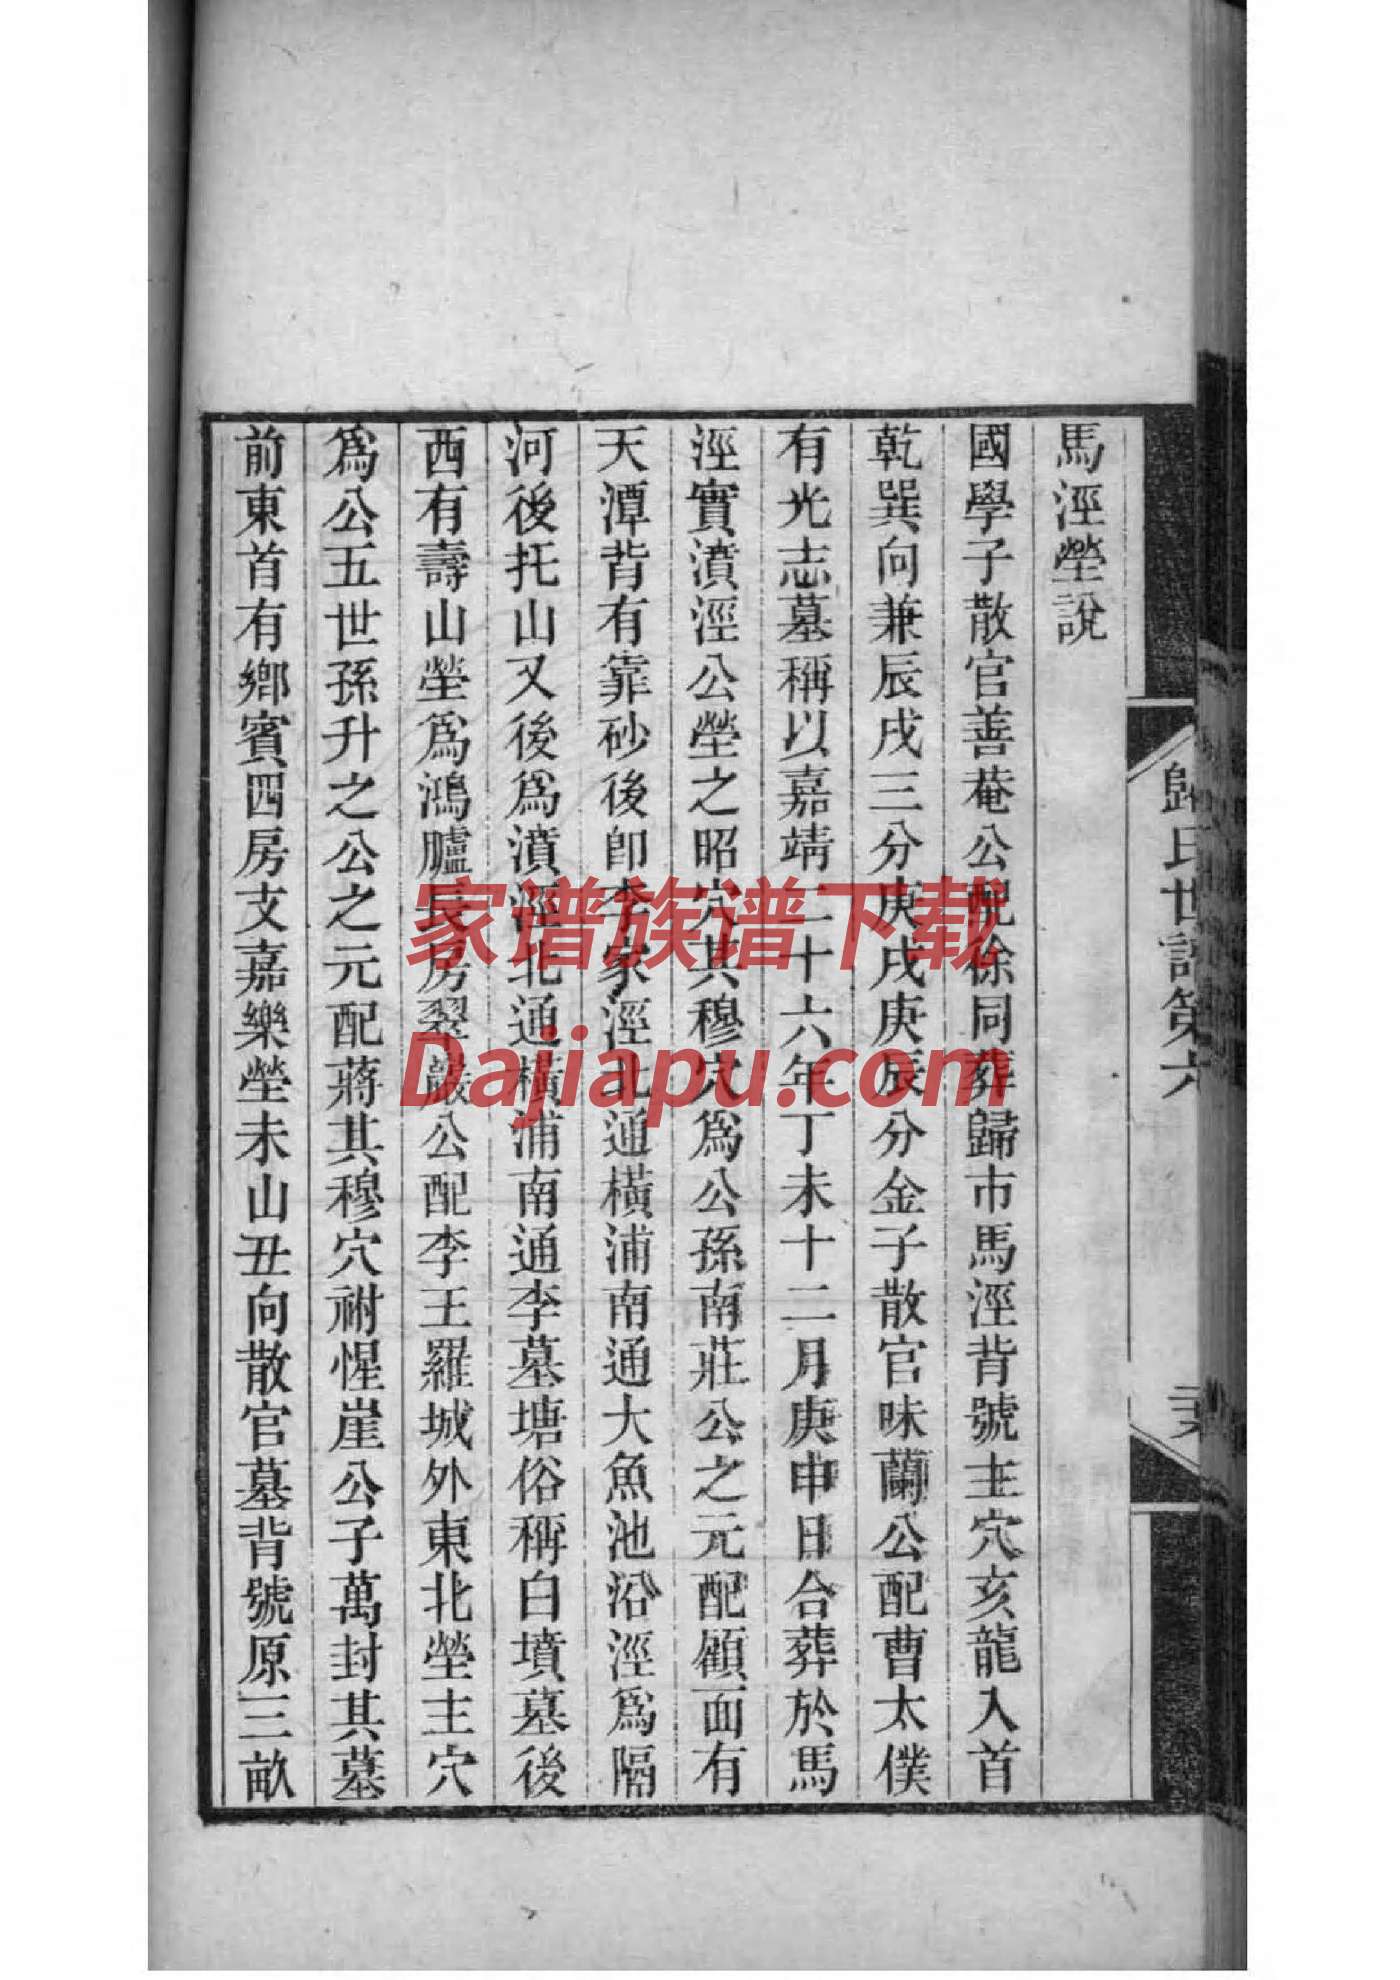 馬涇塋說
國學子散官善菴公配徐同葬歸市馬涇背號主穴亥龍入首
乾巽向兼辰戌三分庚戌庚辰分金子散官味蘭公配曹太僕
有光志墓稱以嘉靖二十六年丁未十二月庚申日合葬於馬
涇實濆涇公塋之昭穴其穆穴爲公孫南莊公之元配顧面有
天潭背有靠砂後卽李家涇北通橫浦南通大魚池沿涇爲隔
河後托山又後爲濆涇北通橫浦南通李墓塘俗稱白墳墓後
西有壽山塋爲鴻臚長房翠巖公配李王羅城外東北塋主穴
爲公五世孫升之公之元配蔣其穆穴祔惺崖公子萬封其墓
前東首有鄉賓四房支嘉樂塋未山丑向散官墓背號原三畝
歸氏世譜第六
二六
家谱族谱下载
Dajiapu.com